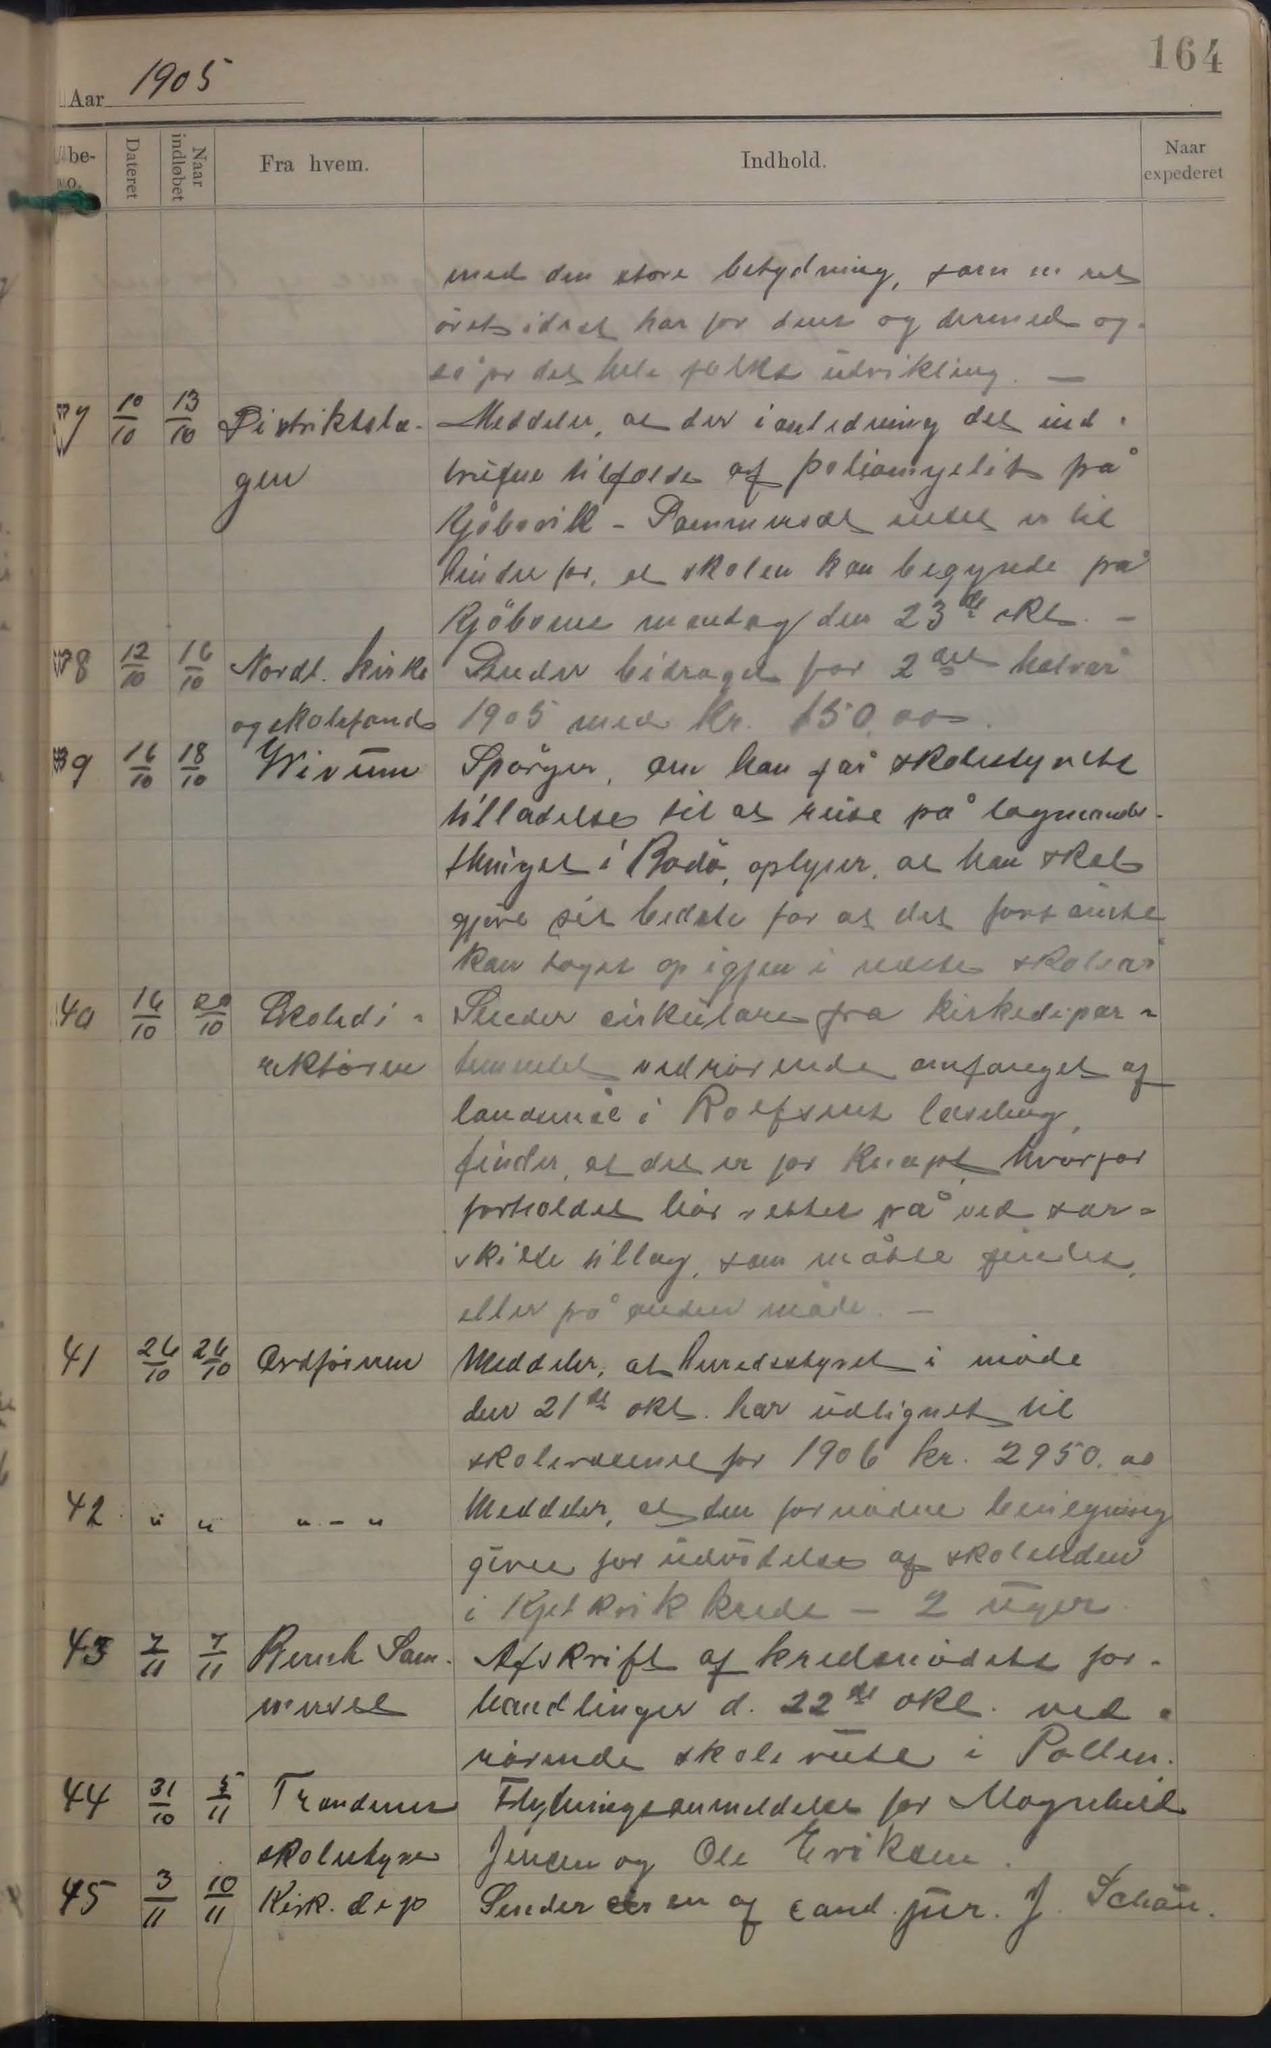 164
Aar 1905
be-
no.
Dateret
Naar indløbet
Fra hvem.
Indhold.
Naar expederet
med den store betydning, som
idræt har for dens og dermed og-
så for det hele folks udvikling. —
7 10/10 13/10 Distriktslæ- Meddeler, at der i anledning det ind-
gen trufne tilfælde af poliomyelit på
Kjöbsvik - Pommeset intet er til
hinder for, at skolen kan begynde på
Kjöbsnes mandag den 23de okt. —
8 12/10 16/10 Nordl. kirke Sender bidraget for 2det halvår
og skolefond 1905 med kr. 150,00.
39 16/10 18/10 Spörger, om han får skolestyrets
tilladelse til at reise på lagmands-
thinget i Bodö, oplyser, at han skal
gjöre sit bedste for at det forsömte
kan tages op igjen i næste skoleår
40 16/10 20/10 Skoledi- Sender cirkulære fra kirkedepar-
rektören tementet vedrörende omfanget af
landsmål i Rolfsens læsebog,
finder, at det er for knapt, hvorfor
forholdet bör rettes på ved sær-
skilte tillæg, som måtte findes,
eller på anden måde. —
41 26/10 26/10 Ordföreren Meddeler, at herredsstyret i möde
den 21de okt. har udlignet til
skolevæsenet for 1906 kr. 2950.00
42 " " " - " Meddeler, at den fornödne bevilgning
given for udvidelse af skoletiden
i Kjelkvik kreds — 2 uger.
43 7/11 7/11 Bernh Sam- Afskrift af kredsmödets for-
handlinger d. 22de okt. ved-
rörende skole i Pollen.
44 31/10 5/11 Trondenes Flytningsanmeldelse for Magnhild
skolestyre Jensen og Ole Eriksen.
45 3/11 10/11 Kirk. dep Sender en af cand. jur. J. Schön.